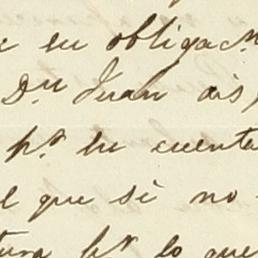 e su obligacⁿ
Dⁿ Juan dis
pʳ su cuenta
l que si no
tura pʳ lo que